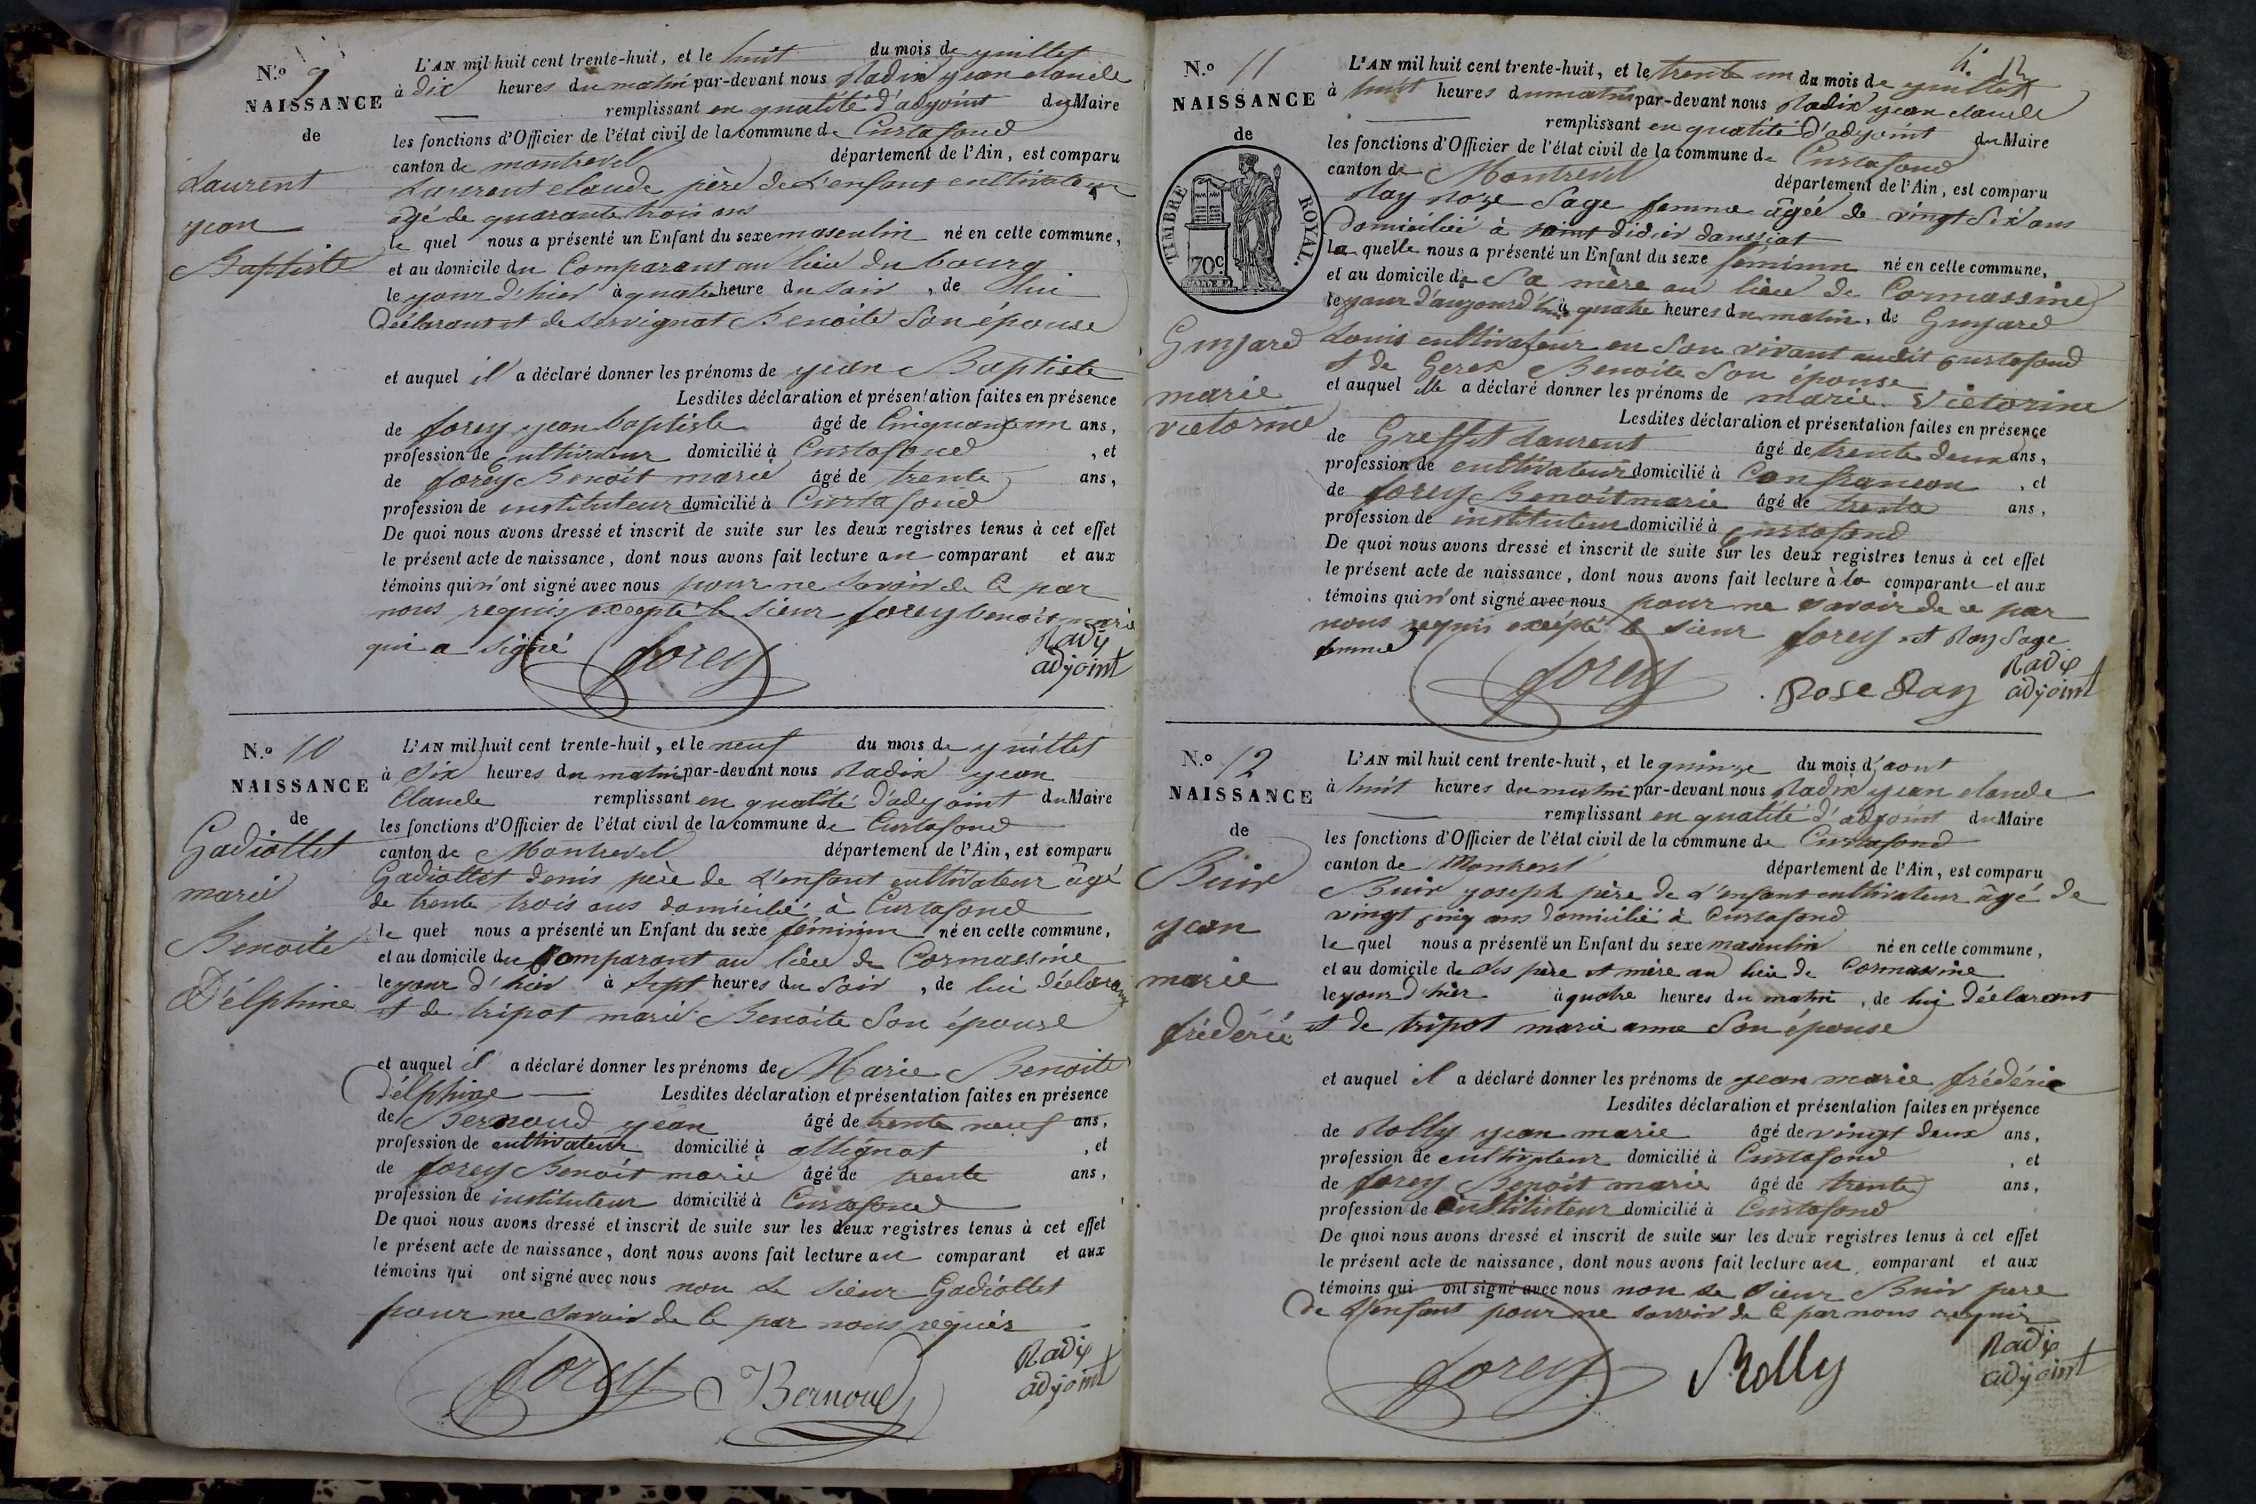 N.º 9
NAISSANCE
de
Laurent
jean
Baptiste
L'AN mil huit cent trente-huit, et le huit du mois de juillet
à dix heures du matin par-devant nous Radix jean claude
remplissant en qualité d'adjoint du Maire
les fonctions d'Officier de l'état civil de la commune de Curtafond
canton de montrevel département de l'Ain, est comparu
Laurent claude père de L'enfant cultivateur
agé de quarante trois ans
le quel nous a présenté un Enfant du sexe masculin né en cette commune,
et au domicile du Comparant au lieu du bourg
le jour d'hier à quatre heure du soir, de lui
Déclarant et de servignat Benoite Son épouse
et auquel il a déclaré donner les prénoms de jean Baptiste
Lesdites déclaration et présentation faites en présence
de forey jean baptiste âgé de Cinquante un ans,
profession de cultivateur domicilié à Curtafond, et
de forey Benoit marie âgé de trente ans,
profession de instituteur domicilié à Curtafond
De quoi nous avons dressé et inscrit de suite sur les deux registres tenus à cet effet
le présent acte de naissance, dont nous avons fait lecture au comparant et aux
témoins qui n'ont signé avec nous pour ne savoir de Ce par
nous requis excepté le sieur forey benoit marie
qui a signé forey Radix
adjoint
N.º 10
NAISSANCE
de
Gadiollet
marie
Benoite
Délphine
L'AN mil huit cent trente-huit, et le neuf du mois de juillet
à Six heures du matin par-devant nous Radix jean
Claude remplissant en qualité d'adjoint du Maire
les fonctions d'Officier de l'état civil de la commune de Curtafond
canton de Montrevel département de l'Ain, est comparu
Gadiollet denis père de L'enfant cultivateur âgé
de trente trois ans domicilié à Curtafond
le quel nous a présenté un Enfant du sexe féminin né en cette commune,
et au domicile du Comparant au lieu de Cormassine
le jour d'hier à Sept heures du Soir, de lui déclarant
et de tripot marie Benoite Son épouse
et auquel il a déclaré donner les prénoms de Marie Benoite
Délphine Lesdites déclaration et présentation faites en présence
de Bernoud jean âgé de trente neuf ans,
profession de cultivateur domicilié à attignat, et
de forey Benoit marie âgé de trente ans,
profession de instituteur domicilié à Curtafond
De quoi nous avons dressé et inscrit de suite sur les deux registres tenus à cet effet
le présent acte de naissance, dont nous avons fait lecture au comparant et aux
témoins qui ont signé avec nous non Le sieur Gadiollet
pour ne savoir de Ce par nous requis
forey Bernoud Radix
adjoint
N.º 11
NAISSANCE
de
TIMBRE ROYAL.
70c
Guyard
marie
victorine
L'AN mil huit cent trente-huit, et le trente un du mois de juillet
à huit heures du matin par-devant nous Radix jean claude
remplissant en qualité d'adjoint du Maire
les fonctions d'Officier de l'état civil de la commune de Curtafond
canton de Montrevel département de l'Ain, est comparu
Ray Roze Sage femme âgée de vingt Six ans
Domiciliée à saint didier daussiat
La quelle nous a présenté un Enfant du sexe feminin né en cette commune,
et au domicile de Sa mère au lieu de Cormassine
le jour d'aujourd'hui à quatre heures du matin, de Guyard
Louis cultivateur en Son vivant audit curtafond
et de Gerex Benoite Son épouse
et auquel elle a déclaré donner les prénoms de marie Victorine
Lesdites déclaration et présentation faites en présence
de Greffet Laurent âgé de trente deux ans,
profession de cultivateur domicilié à Confrancon, et
de forey Benoit marie âgé de trente ans,
profession de instituteur domicilié à Curtafond
De quoi nous avons dressé et inscrit de suite sur les deux registres tenus à cet effet
le présent acte de naissance, dont nous avons fait lecture à la comparante et aux
témoins qui n'ont signé avec nous pour ne savoir de ce par
nous requis excepté le sieur forey et Ray Sage
femme
forey Rose Ray Radix
adjoint
N.º 12
NAISSANCE
de
Buir
jean
marie
frédéric
L'AN mil huit cent trente-huit, et le quinze du mois d'aout
à huit heures du matin par-devant nous Radix jean claude
remplissant en qualité d'adjoint du Maire
les fonctions d'Officier de l'état civil de la commune de Curtafond
canton de Montrevel département de l'Ain, est comparu
Buir joseph père de L'enfant cultivateur âgé de
vingt cinq ans domicilié à Curtafond
le quel nous a présenté un Enfant du sexe masculin né en cette commune,
et au domicile de Ses père et mère au lieu de Cormassine
le jour d'hier à quatre heures du matin, de lui Déclarant
et de tripot marie anne Son épouse
et auquel il a déclaré donner les prénoms de jean marie frédéric
Lesdites déclaration et présentation faites en présence
de Rolly jean marie âgé de vingt deux ans,
profession de cultivateur domicilié à Curtafond, et
de forey Benoit marie âgé de trente ans,
profession de instituteur domicilié à Curtafond
De quoi nous avons dressé et inscrit de suite sur les deux registres tenus à cet effet
le présent acte de naissance, dont nous avons fait lecture au comparant et aux
témoins qui ont signé avec nous non Le Sieur Buir pere
De L'enfant pour ne savoir de Ce par nous requis
forey Rolly Radix
adjoint